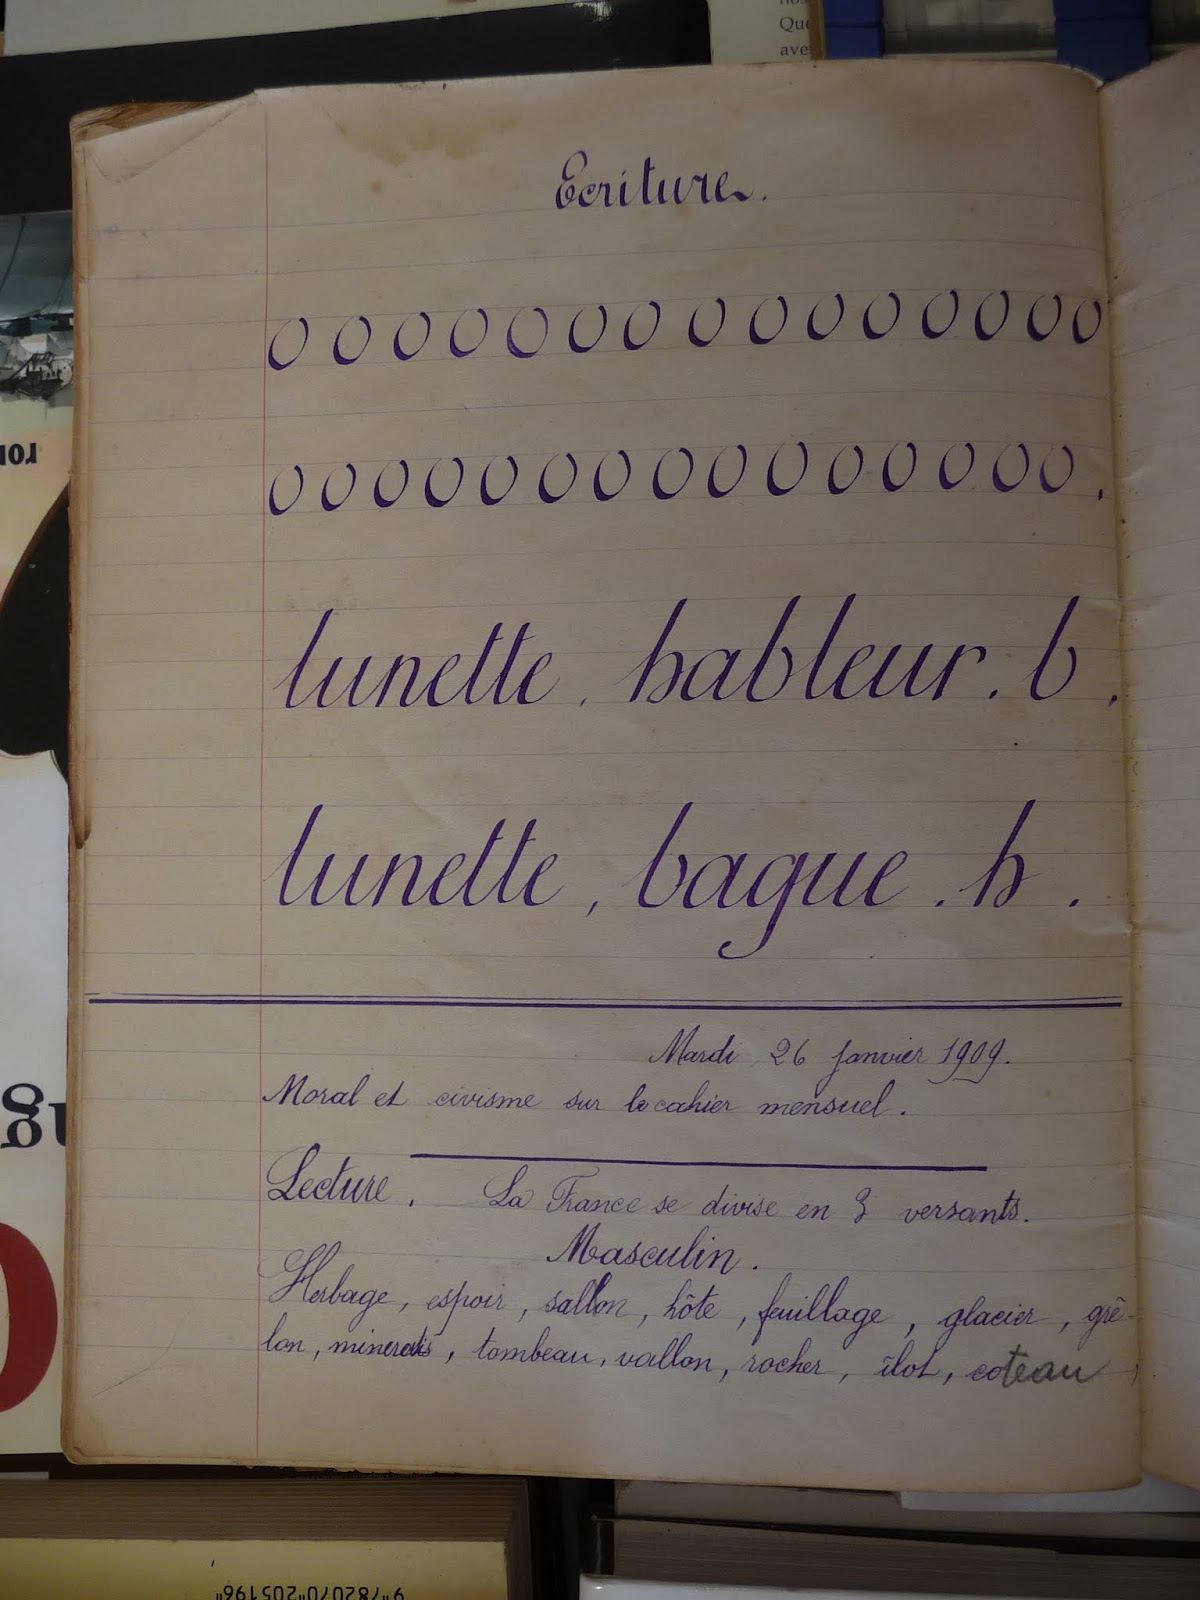 Que
ave
Ecriture.
0 0 0 0 0 0 0 0 0 0 0 0 0 0 0
0 0 0 0 0 0 0 0 0 0 0 0 0 0 0.
lunette. hableur. b.
lunette, bague. h.
Mardi 26 Janvier 1909.
Moral et civisme sur le cahier mensuel.
Lecture. La France se divise en 3 versants.
Masculin.
Herbage, espoir, sallon, hôte, feuillage, glacier, grê-
lon, minerais, tombeau, vallon, rocher, îlot, coteau,
9"782070"205196"